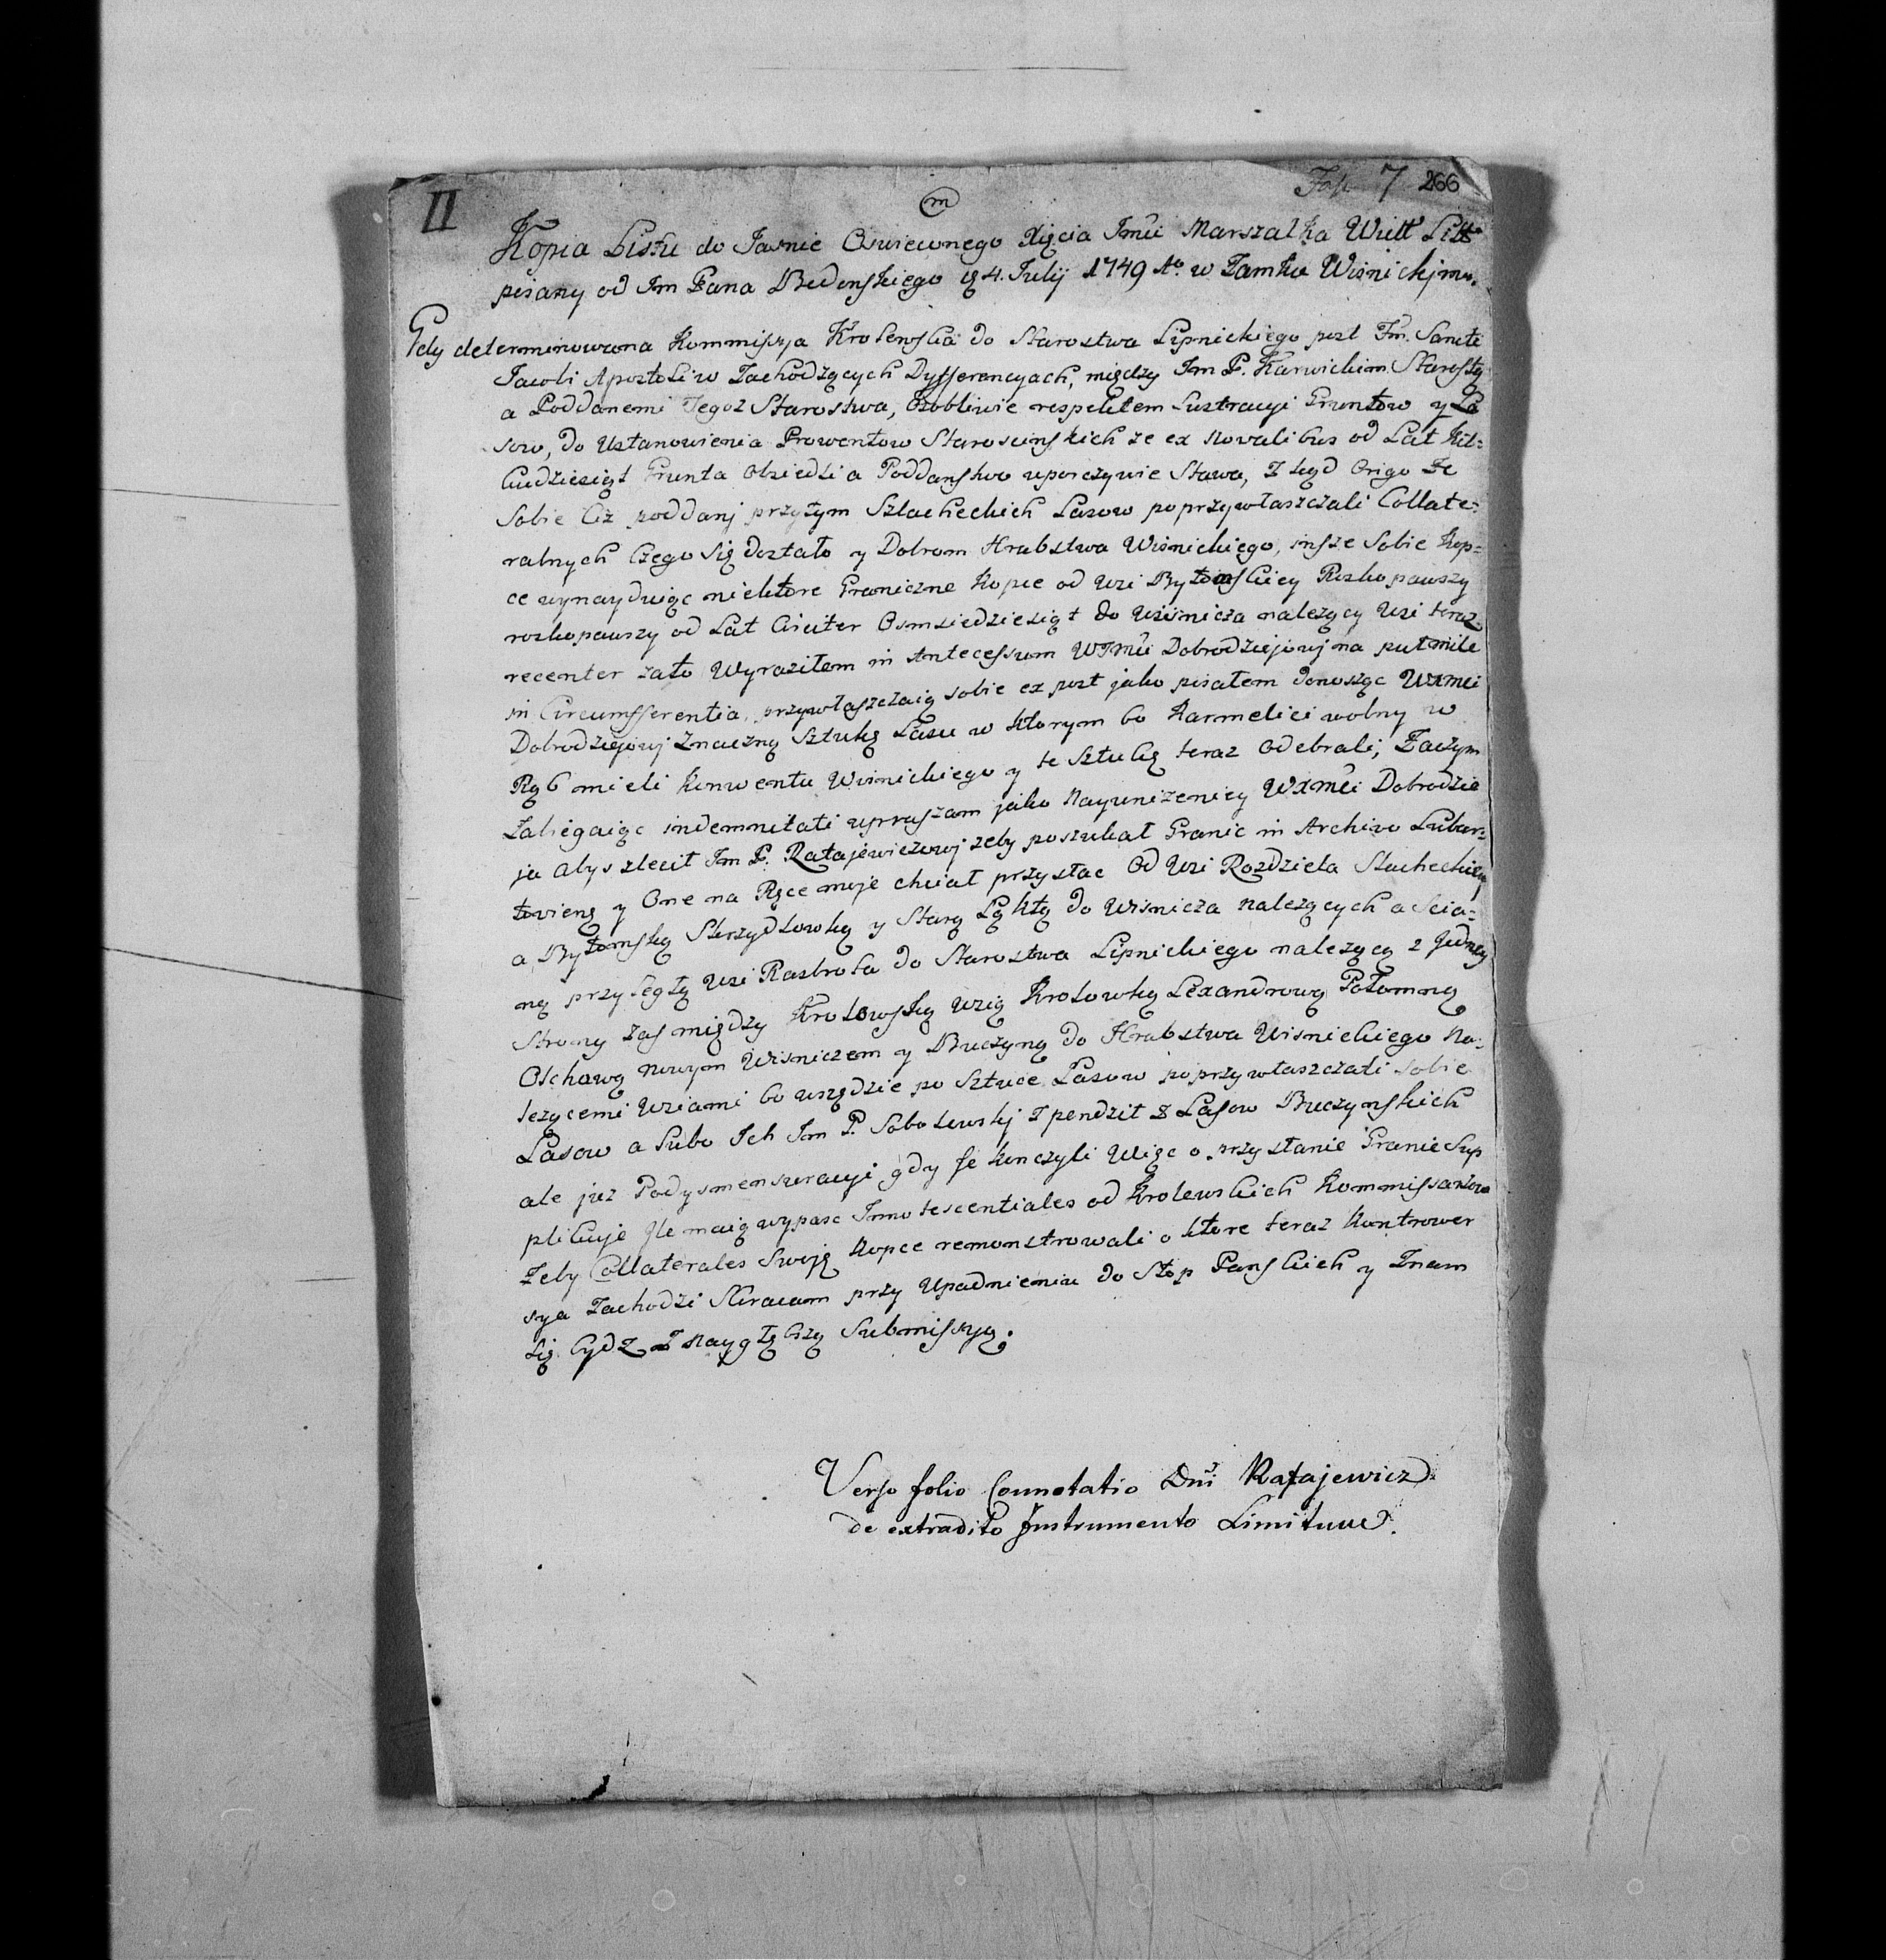 II
m
Fol. 7 266
Kopia Listu do Jasnie Oswieconego Xięcia Jmći Marszałka Wiell Litt
pisany od Jm Pana Bedonskiego d 4. Julij 1749 Ao. w Zamku Wisnickjm.
Gdy determinowana Kommissya Krolewska do Starostwa Lipnickiego post Fm. Sancti
Jacobi Apostoli w Zachodzących Dyfferencyach, między Jm P. Karwickim Starostą
a Poddanemi Tegoz Starostwa, Osobliwie respektem Lustracyi Gruntow y La
sow, do Ustanowienia Prowentow Staroscinskich ze ex Novalibus od Lat kil=
kudziesiąt Grunta Obsiedli a Poddanstwo uporczywie Stawa, Z tąd Origo Ze
Sobie Ciz poddanj przytym Szlacheckich Lasow poprzywłaszczali Collate=
ralnych Czego Się dostało y Dobrom Hrabstwa Wisnickiego, insze Sobie Kop=
ce wynayduiąc niektore Graniczne Kopce od Wsi Bytomskiey Rozkopawszy
rozkopawszy od Lat Circiter Osmdziedziesiąt do Wisnicza nalezący Wsi teraz
recenter zato Wyraziłem in Antecessum WXMći Dobrodziejowj na pułmile
in Circumfferentia, przywłaszczaią sobie ex post jako pisałem donosząc WXMći
Dobrodziejowj Znaczną Sztukę Lasu w ktorym bo Karmelici wolny w
Rąb mieli Konwentu Wisnickiego y te Sztukę teraz Odebrali, Zaczym
Zabiegaiąc indemnitati upraszam jako Nayunizeniey WXMći Dobrodzie
ja Abys zlecił Jm P. Ratajewiczowj zeby poszukał Granic in Archivo Lubar=
towieng y One na Ręce moje chciał przysłac Od Wsi Rozdziela Slacheckiey
a Bytomską Skrzydlowką y Starą Łąktą do Wisnicza nalezących a Scia=
ną przyległą Wsi Razbrota do Starostwa Lipnickiego nalezącą z Jedney
Strony Zas między Krolowską Wsią Krolowką Lexandrową Połomną
Olchawą nowym Wisniczem y Buczyną do Hrabstwa Wisnickiego Na=
lezącemi Wsiami bo wszędzie po Sztuce Lasow poprzywłaszczali sobie
Lasow a lubo Ich Jm P. Sobolewskj Zpendził z Lasow Buczynskich
ale juz Podysmensuracyi gdy Se konczyli Więc o przysłanie Granic Sup
plikuje Ile maią wypasc Innotescentiales od Krolewskich Kommissarzow
Zeby Collaterales Swoję Kopce remonstrowali o ktore teraz Kontrower
sya Zachodzi Skracam przy Upadnieniu do Stop Panskich y Znam
Się bydz z Naygłębszą Submissyą.
Verso folio Connotatio Dni Ratajewicz
de extradito Instrumento Limitum.